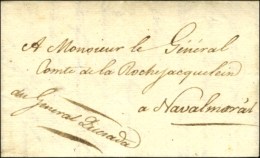 A Monsieur le Général
Comte de la Rochejacquelein
à Navalmoral
du Général Quesada